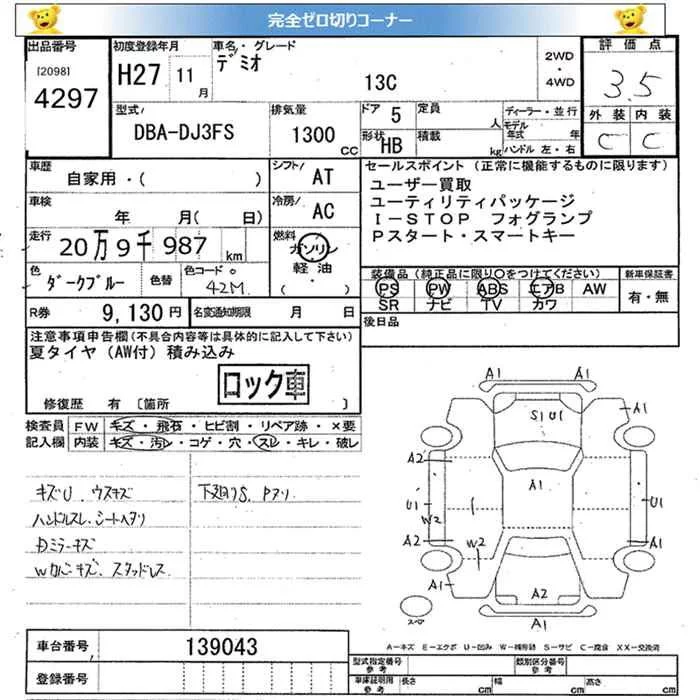 完全ゼロ切りコーナー
出品番号 初度登録年月 車名・グレード 2WD・4WD 評価点
[2098] 4297
H27 11月 デミオ 13C
3.5
型式 DBA-DJ3FS 排気量 1300cc ドア 5 定員 人 ディーラー・並行 外装 内装
形状 HB 積載 kg モデル年式 年 ハンドル 左・右 C C
車歴 自家用・( ) シフト/ AT
セールスポイント(正常に機能するものに限ります)
車検 年 月(日) 冷房/ AC
ユーザー買取
ユーティリティパッケージ
I-STOP フォグランプ
Pスタート・スマートキー
走行 20万9千987km 燃料 ガソリン 軽油・( )
色 ダークブルー 色替 色コード 42M
装備品(純正品に限り○をつけてください) 新車保証書
PS PW ABS エアB AW 有・無
SR ナビ TV カワ
R券 9,130円 名変通知期限 月 日
後日品
注意事項申告欄(不具合内容等は具体的に記入して下さい)
夏タイヤ(AW付)積み込み
ロック車
修復歴 有〔箇所 〕
検査員 FW キズ・飛石・ヒビ割・リペア跡・×要
記入欄 内装 キズ・汚レ・コゲ・穴・スレ・キレ・破レ
キズU. ウスキズ 下廻りS. Pアリ
ハンドルスレ. シートヘタリ
Dミラーキズ
Wカバーキズ. スタッドレス
A1 A1
S1 U1 A1
A2 A1
U1 W2 U1
A2 W2 A1
A1 A2
スペア A1
A=キズ E=エクボ U=凹み W=補修跡 S=サビ C=腐食 XX=交換済
車台番号 139043
登録番号
型式指定番号 参考 類別区分番号 参考
車庫証明用 参考 長さ cm 幅 cm 高さ cm